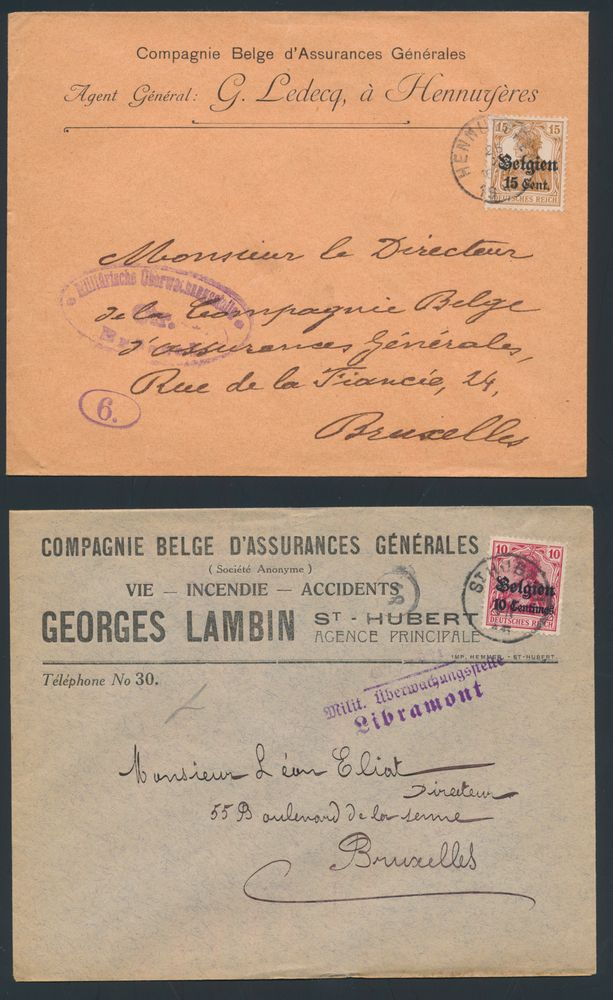 Compagnie Belge d'Assurances Générales
Agent Général: G. Ledecq, à Hennuyères
15 15
Belgien
15 Cent.
DEUTSCHES REICH
HENNU
18
Monsieur le Directeur
de la Compagnie Belge
d'assurances Générales,
Rue de la Fiancée, 24,
Bruxelles
Militärische
6.
COMPAGNIE BELGE D'ASSURANCES GÉNÉRALES
(Société Anonyme)
VIE — INCENDIE — ACCIDENTS
GEORGES LAMBIN ST - HUBERT
AGENCE PRINCIPALE
IMP. HEMMER - ST-HUBERT.
Téléphone No 30.
10 10
Belgien
10 Centimes
DEUTSCHES REICH
ST HUB
Milit. Überwachungsstelle
Libramont
Monsieur Léon Eliat
Directeur
55 Boulevard de la senne
Bruxelles